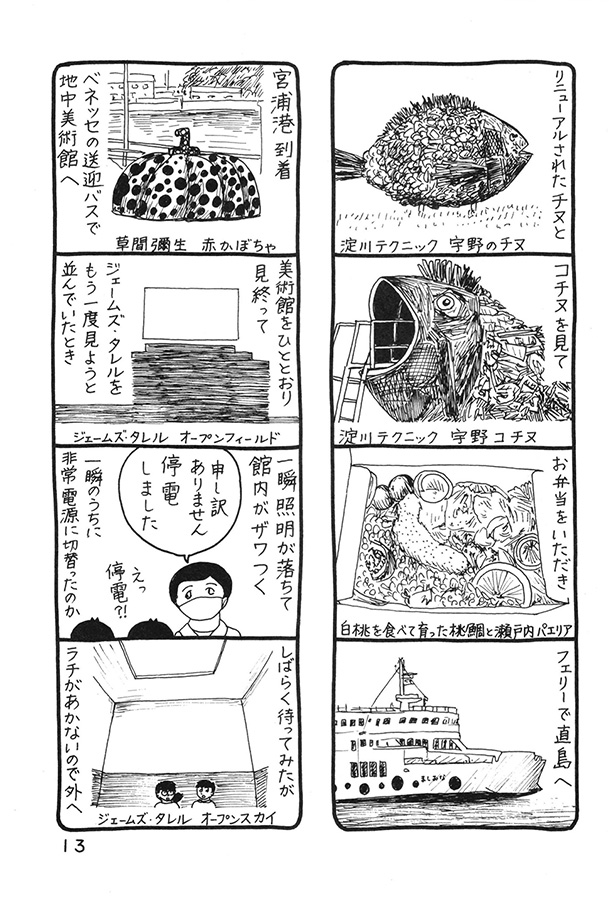 リニューアルされたチヌと
淀川テクニック 宇野のチヌ
コチヌを見て
淀川テクニック 宇野コチヌ
お弁当をいただき
白桃を食べて育った桃鯛と瀬戸内パエリア
フェリーで直島へ
ましおな
宮浦港到着
ベネッセの送迎バスで
地中美術館へ
草間彌生 赤かぼちゃ
美術館をひととおり
見終って
ジェームズ・タレルを
もう一度見ようと
並んでいたとき
ジェームズ・タレル オープンフィールド
一瞬照明が落ちて
館内がザワつく
申し訳
ありません
停電
しました
えっ
停電?!
一瞬のうちに
非常電源に切替ったのか
しばらく待ってみたが
ラチがあかないので外へ
ジェームズ・タレル オープンスカイ
13